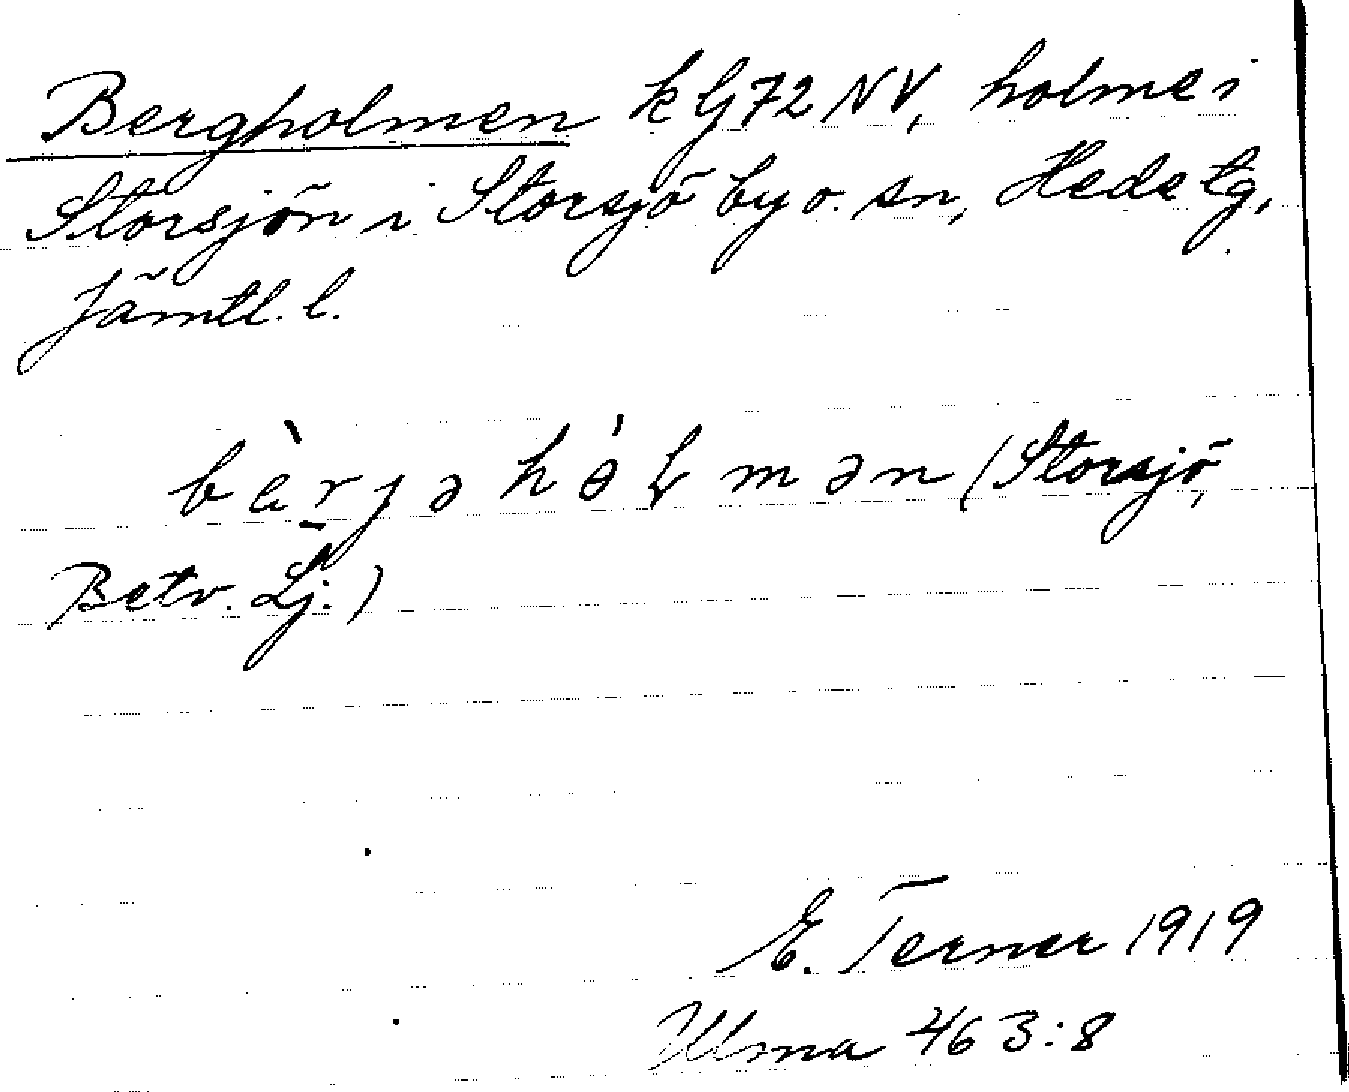 Bergholmen kG72NV, holme i
Storsjön i Storsjö by o. sn, Heds tg,
Jämtl. l.
bærjəhòɫmən (Storsjö,
Betv. Lj.)
E. Terner 1919
Ulma 463:8